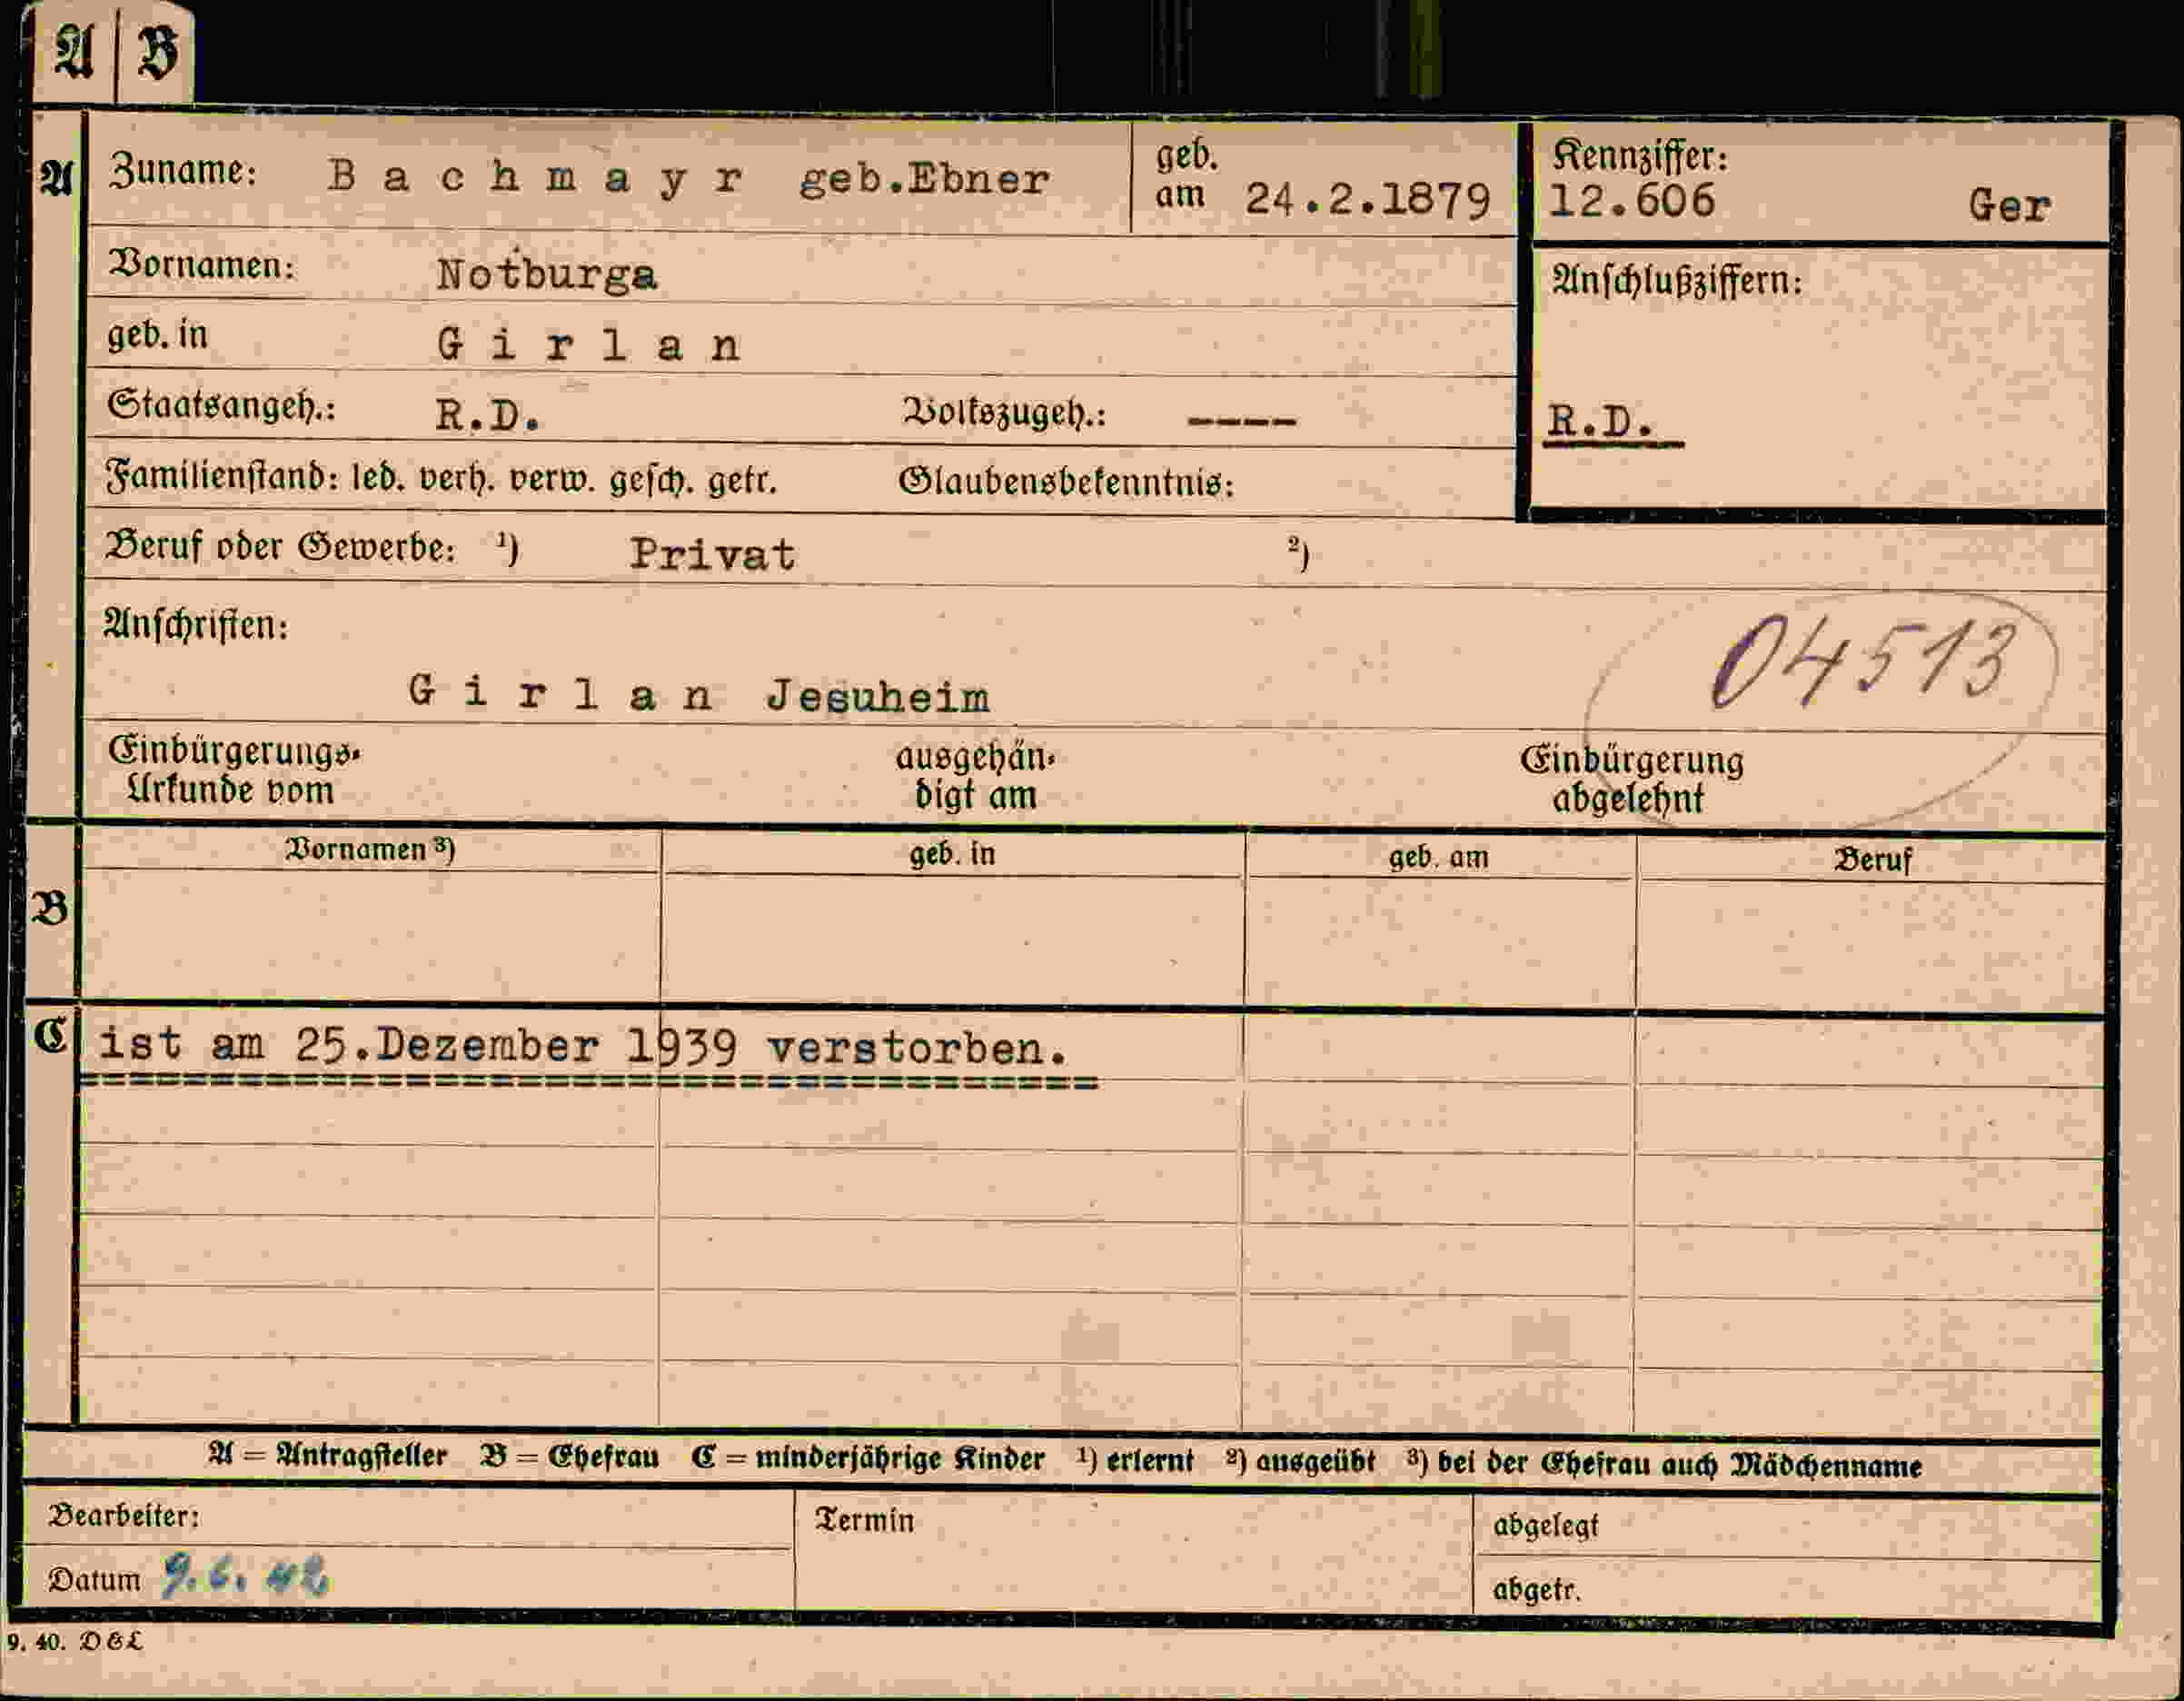 A B
A Zuname: Bachmayr geb.Ebner geb. am 24.2.1879 Kennziffer: 12.606 Ger
Vornamen: Notburga
Anschlußziffern:
geb. in Girlan
Staatsangeh.: R.D. Volkszugeh.: ----
R.D.
Familienstand: led. verh. verw. gesch. getr. Glaubensbekenntnis:
Beruf oder Gewerbe: ¹) Privat ²)
Anschriften:
04513
Girlan Jesuheim
Einbürgerungs- ausgehän- Einbürgerung
Urkunde vom digt am abgelehnt
B Vornamen ³) geb. in geb. am Beruf
C ist am 25.Dezember 1939 verstorben.
A = Antragsteller B = Ehefrau C = minderjährige Kinder ¹) erlernt ²) ausgeübt ³) bei der Ehefrau auch Mädchenname
Bearbeiter: Termin abgelegt
Datum 9.6.42 abgetr.
9. 40. D&L